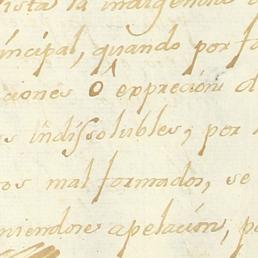 vista la indigencia
incipal, quando por fa
ciones o expreción d
os indissolubles; por
ros mal formados, se
niendose apelación, p